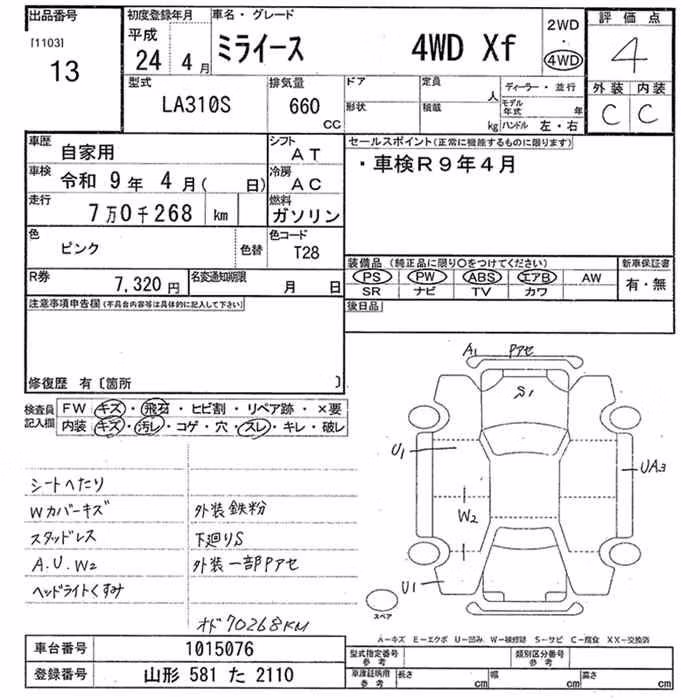 出品番号 初度登録年月 車名・グレード 評価点
[1103] 13
平成 24 4月 ミライース 4WD Xf 2WD・4WD 4
外装 内装
C C
型式 LA310S 排気量 660 CC
ドア 定員 人 ディーラー・並行
形状 積載 kg モデル年式 年
ハンドル 左・右
車歴 自家用 シフト AT
車検 令和 9年 4月( 日) 冷房 AC
走行 7万0千268 km 燃料 ガソリン
色 ピンク 色替 色コード T28
R券 7,320円 名変通知期限 月 日
セールスポイント(正常に機能するものに限ります)
・車検R9年4月
装備品 (純正品に限り○をつけてください) 新車保証書
PS PW ABS エアB AW 有・無
SR ナビ TV カワ
後日品
注意事項申告欄(不具合内容等は具体的に記入して下さい)
修復歴 有〔箇所 〕
検査員記入欄
FW キズ・飛石・ヒビ割・リペア跡・×要
内装 キズ・汚レ・コゲ・穴・スレ・キレ・破レ
シートへたり
Wカバーキズ 外装鉄粉
スタッドレス 下廻りS
A.U.W2 外装一部Pアセ
ヘッドライトくすみ
オド70268KM
A1 Pアセ
S1
U1 UA3
W2
U1
スペア
A-キズ E-エクボ U-凹み W-板修跡 S-サビ C-腐食 XX-交換済
車台番号 1015076
登録番号 山形 581 た 2110
型式指定番号 参考 類別区分番号 参考
車庫証明用 参考 長さ cm 幅 cm 高さ cm